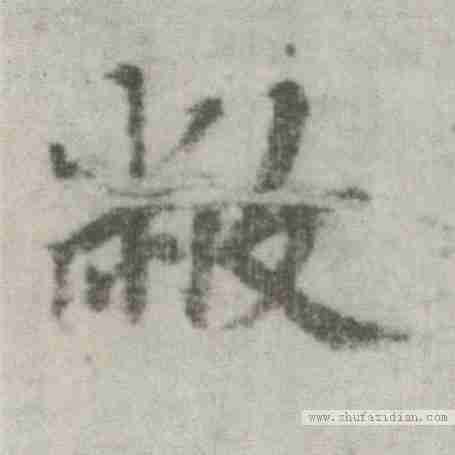 敝
www.zhufazidian.com